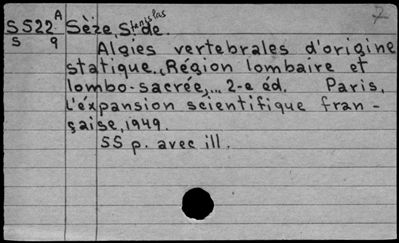 S522 A Sèze, Stanislas de.
S 9
Algies vertebrales d'origine
statique... (Région lombaire et
lombo-sacrée)... 2-e éd. Paris,
L'éxpansion scientifique fran-
çaise, 1949.
55 p. avec ill.
7